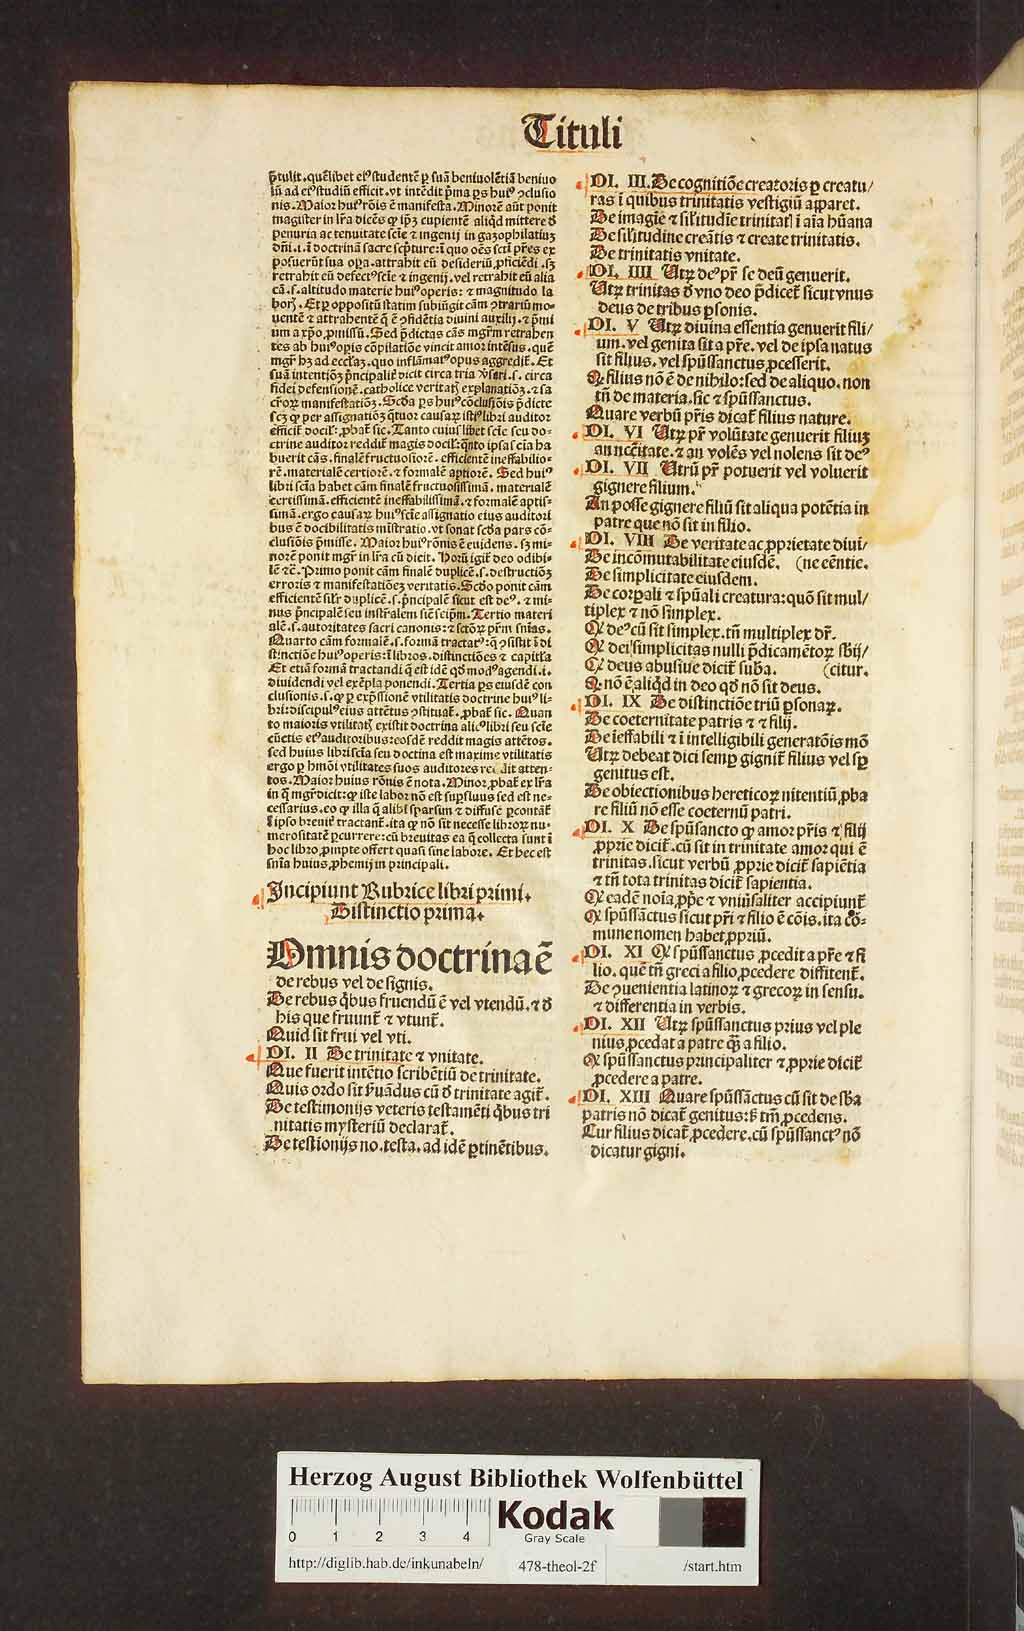 Tituli
p̄tulit. quēlibet eiꝰ studentē ꝑ suā beniuolētiā beniuo
lū ad eiꝰ studiū efficit. vt intēdit p̄ma ꝑs huiꝰ ↄclusio
nis. Maior huiꝰ rōis ē manifesta. Minorē aūt ponit
magister in lr̄a dicēs ꝙ ip̄ꝫ cupientē aliqd̄ mittere d̄
penuria ac tenuitate scīe ⁊ ingenij in gazophilatiuꝫ
dn̄i .i. ī doctrinā sacre scp̄ture: ī quo oēs scī pr̄es ex
posuerūt sua oꝑa. attrahit eū desideriū ꝓficiēdi. sꝫ
retrahit eū defectꝰ scīe ⁊ ingenij. vel retrahit eū alia
cā .s. altitudo materie huiꝰ operis: ⁊ magnitudo la
boꝝ. Et ꝑ oppositū statim subiūgit cām ↄtrariū mo-
uentē ⁊ attrahentē q̄ ē ↄfidētia diuini auxilij. ⁊ p̄mi
um a xp̄o ꝓmissū. Sed p̄dictas cās mgr̄m retrahen
tes ab huiꝰ oꝑis cōpilatiōe vincit amor intēsus. quē
mgr̄ hꝫ ad eccl̄iaꝫ. quo inflāmatꝰ opus aggredit̄. Et
suā intentiōꝫ p̄ncipalit̄ dicit circa tria v̄sari .s. circa
fidei defensionē. catholice veritat̄ꝭ explanatiōꝫ. ⁊ sa
cr̄oꝝ manifestatiōꝫ. Scd̄a ꝑs huiꝰ cōclusiōis p̄dicte
scꝫ ꝙ per assignatiōꝫ q̄tuor causaꝝ istiꝰ libri auditor
efficit̄ docil̄: ꝓbat̄ sic. Tanto cuiuslibet scīe seu do-
ctrine auditor reddit̄ magis docil̄: q̄nto ipsa scīa ha
buerit cās. finalē fructuosiorē. efficientē ineffabilio-
rē. materialē certiorē. ⁊ formalē aptiorē. Sed huiꝰ
libri scīa habet cām finalē fructuosissimā. materialē
certissimā. efficientē ineffabilissimā. ⁊ formalē aptis-
simā. ergo causaꝝ huiꝰ scīe assignatio eius auditori
bus ē docibilitatis mīstratio. vt sonat scd̄a pars cō-
clusiōis p̄misse. Maior huiꝰ rōnis ē euidens. sꝫ mi-
norē ponit mgr̄ in lr̄a cū dicit. Horū igit̄ deo odibi-
lē ⁊c̄. Primo ponit cām finalē duplicē .s. destructiōꝫ
erroris ⁊ manifestatiōeꝫ veritatis. Scd̄o ponit cām
efficientē sil̄r duplicē .s. p̄ncipalē sicut est deꝰ. ⁊ mi-
nus p̄ncipalē seu instr̄alem sic̄ seip̄m. Tertio materi
alē .s. autoritates sacri canonis: ⁊ sctōꝝ pr̄m sn̄ias.
Quarto cām formalē .s. formā tractatꝰ: q̄ ↄsistit ī di
stinctiōe huiꝰ operis: ī libros. distinctiōes ⁊ capitl̄a
Et etiā formā tractandi q̄ est idē qd̄ modꝰ agendi .i.
diuidendi vel exēpla ponendi. Tertia ꝑs eiusdē con
clusionis .s. ꝙ ꝑ exp̄ssionē vtilitatis doctrine huiꝰ li-
bri: discipulꝰ eius attētus ↄstituat̄. ꝓbat̄ sic. Quan
to maioris vtilitat̄ꝭ existit doctrina alicꝰ libri seu scīe
cūctis eiꝰ auditoribus: eosdē reddit magis attētos.
sed huius libri scīa seu doctrina est maxime vtilitatis
ergo ꝑ hmōi vtilitates suos auditores reddit atten-
tos. Maior huius rōnis ē nota. Minor ꝓbat̄ ex lr̄a
in q̄ mgr̄ dicit: ꝙ iste labor nō est suꝑfluus sed est ne-
cessarius. eo ꝙ illa q̄ alibi sparsim ⁊ diffuse ꝑcontāt̄
ī ipso breuit̄ tractant̄. ita ꝙ nō sit necesse libroꝝ nu-
merositatē ꝑcurrere: cū breuitas ea q̄ collecta sunt ī
hoc libro ꝓmpte offert quasi sine labore. Et hec est
sn̄ia huius ꝓhemij in principali.
Incipiunt Rubrice libri primi.
Distinctio prima.
Omnis doctrina ē
de rebus vel de signis.
De rebus q̄bus fruendū ē vel vtendū. ⁊ d̄
his que fruunt̄ ⁊ vtunt̄.
Quid sit frui vel vti.
DI. II De trinitate ⁊ vnitate.
Que fuerit intētio scribētiū de trinitate.
Quis ordo sit ẜuādus cū d̄ trinitate agit̄.
De testimonijs veteris testamēti q̄bus tri
nitatis mysteriū declarat̄.
De testiōijs no. testa. ad idē ꝑtinētibus.
DI. III. De cognitiōe creatoris ꝑ creatu/
ras ī quibus trinitatis vestigiū apparet.
De imagīe ⁊ sil̄itudīe trinitat̄ꝭ ī aīa hūana
De sil̄itudine creātis ⁊ create trinitatis.
De trinitatis vnitate.
DI. IIII Utꝝ deꝰ pr̄ se deū genuerit.
Utꝝ trinitas d̄ vno deo p̄dicet̄ sicut vnus
deus de tribus ꝑsonis.
DI. V Utꝝ diuina essentia genuerit fili/
um. vel genita sit a pr̄e. vel de ipsa natus
sit filius. vel sp̄ūssanctus ꝓcesserit.
Ꝙ filius nō ē de nihilo: sed de aliquo. non
tn̄ de materia. sic ⁊ sp̄ūssanctus.
Quare verbū pr̄is dicat̄ filius nature.
DI. VI Utꝝ pr̄ volūtate genuerit filiuꝫ
an nc̄citate. ⁊ an volēs vel nolens sit deꝰ
DI. VII Utrū pr̄ potuerit vel voluerit
gignere filium.
An posse gignere filiū sit aliqua potētia in
patre que nō sit in filio.
DI. VIII De veritate ac ꝓprietate diui/
De incōmutabilitate eiusdē. (ne eēntie.
De simplicitate eiusdem.
De corꝑali ⁊ sp̄uāli creatura: quō sit mul/
tiplex ⁊ nō simplex.
Ꝙ deꝰ cū sit simplex. tn̄ multiplex dr̄.
Ꝙ dei simplicitas nulli p̄dicamētoꝝ sb̄ij/
Ꝙ deus abusiue dicit̄ suba. (citur.
Ꝙ nō ē aliqd̄ in deo qd̄ nō sit deus.
DI. IX De distinctiōe triū ꝑsonaꝝ.
De coeternitate patris ⁊ ⁊ filij.
De ieffabili ⁊ ī intelligibili generatōis mō
Utꝝ debeat dici semꝑ gignit̄ filius vel sꝑ
genitus est.
De obiectionibus hereticoꝝ nitentiū ꝓba
re filiū nō esse coeternū patri.
DI. X De sp̄ūsancto ꝙ amor pr̄is ⁊ filij
ꝓprie dicit̄. cū sit in trinitate amor qui ē
trinitas. sicut verbū ꝓprie dicit̄ sapiētia
⁊ tn̄ tota trinitas dicit̄ sapientia.
Ꝙ eadē noīa ꝓp̄e ⁊ vniūsaliter accipiunt̄
Ꝙ sp̄ūssāctus sicut pr̄i ⁊ filio ē cōis. ita cō-
mune nomen habet ꝓpriū.
DI. XI Ꝙ sp̄ūssanctus ꝓcedit a pr̄e ⁊ fi
lio. quē tn̄ greci a filio ꝓcedere diffitent̄.
De ↄuenientia latinoꝝ ⁊ grecoꝝ in sensu.
⁊ differentia in verbis.
DI. XII Utꝝ sp̄ūssanctus prius vel ple
nius ꝓcedat a patre q̄ꝫ a filio.
Ꝙ sp̄ūssanctus principaliter ⁊ ꝓprie dicit̄
ꝓcedere a patre.
DI. XIII Quare sp̄ūssāctus cū sit de sb̄a
patris nō dicat̄ genitus: ẜꝫ tm̄ ꝓcedens.
Cur filius dicat̄ ꝓcedere. cū sp̄ūssanctꝰ nō
dicatur gigni.
Herzog August Bibliothek Wolfenbüttel
0 1 2 3 4
Kodak
Gray Scale
http://diglib.hab.de/inkunabeln/ 478-theol-2f /start.htm